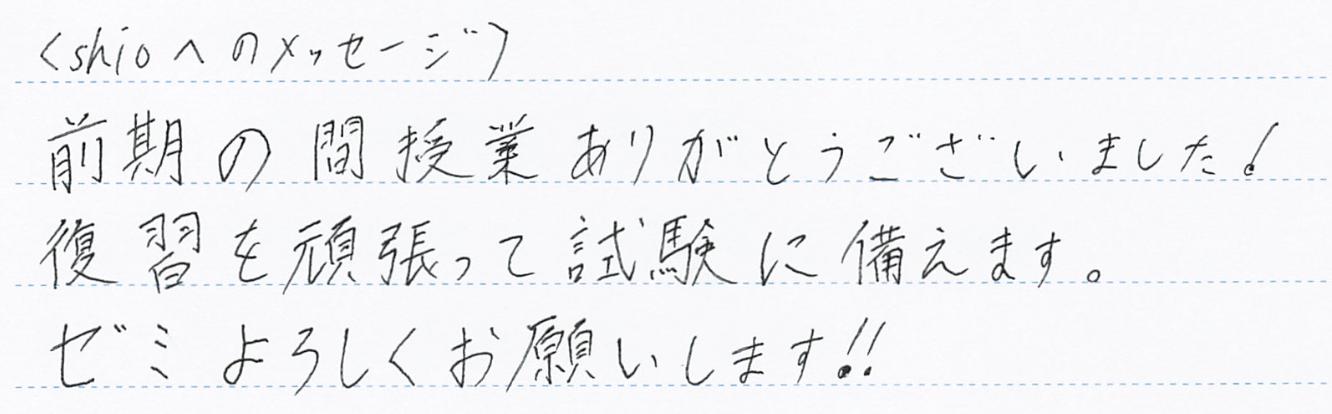 <shioへのメッセージ>
前期の間授業ありがとうございました!
復習を頑張って試験に備えます。
ゼミよろしくお願いします!!